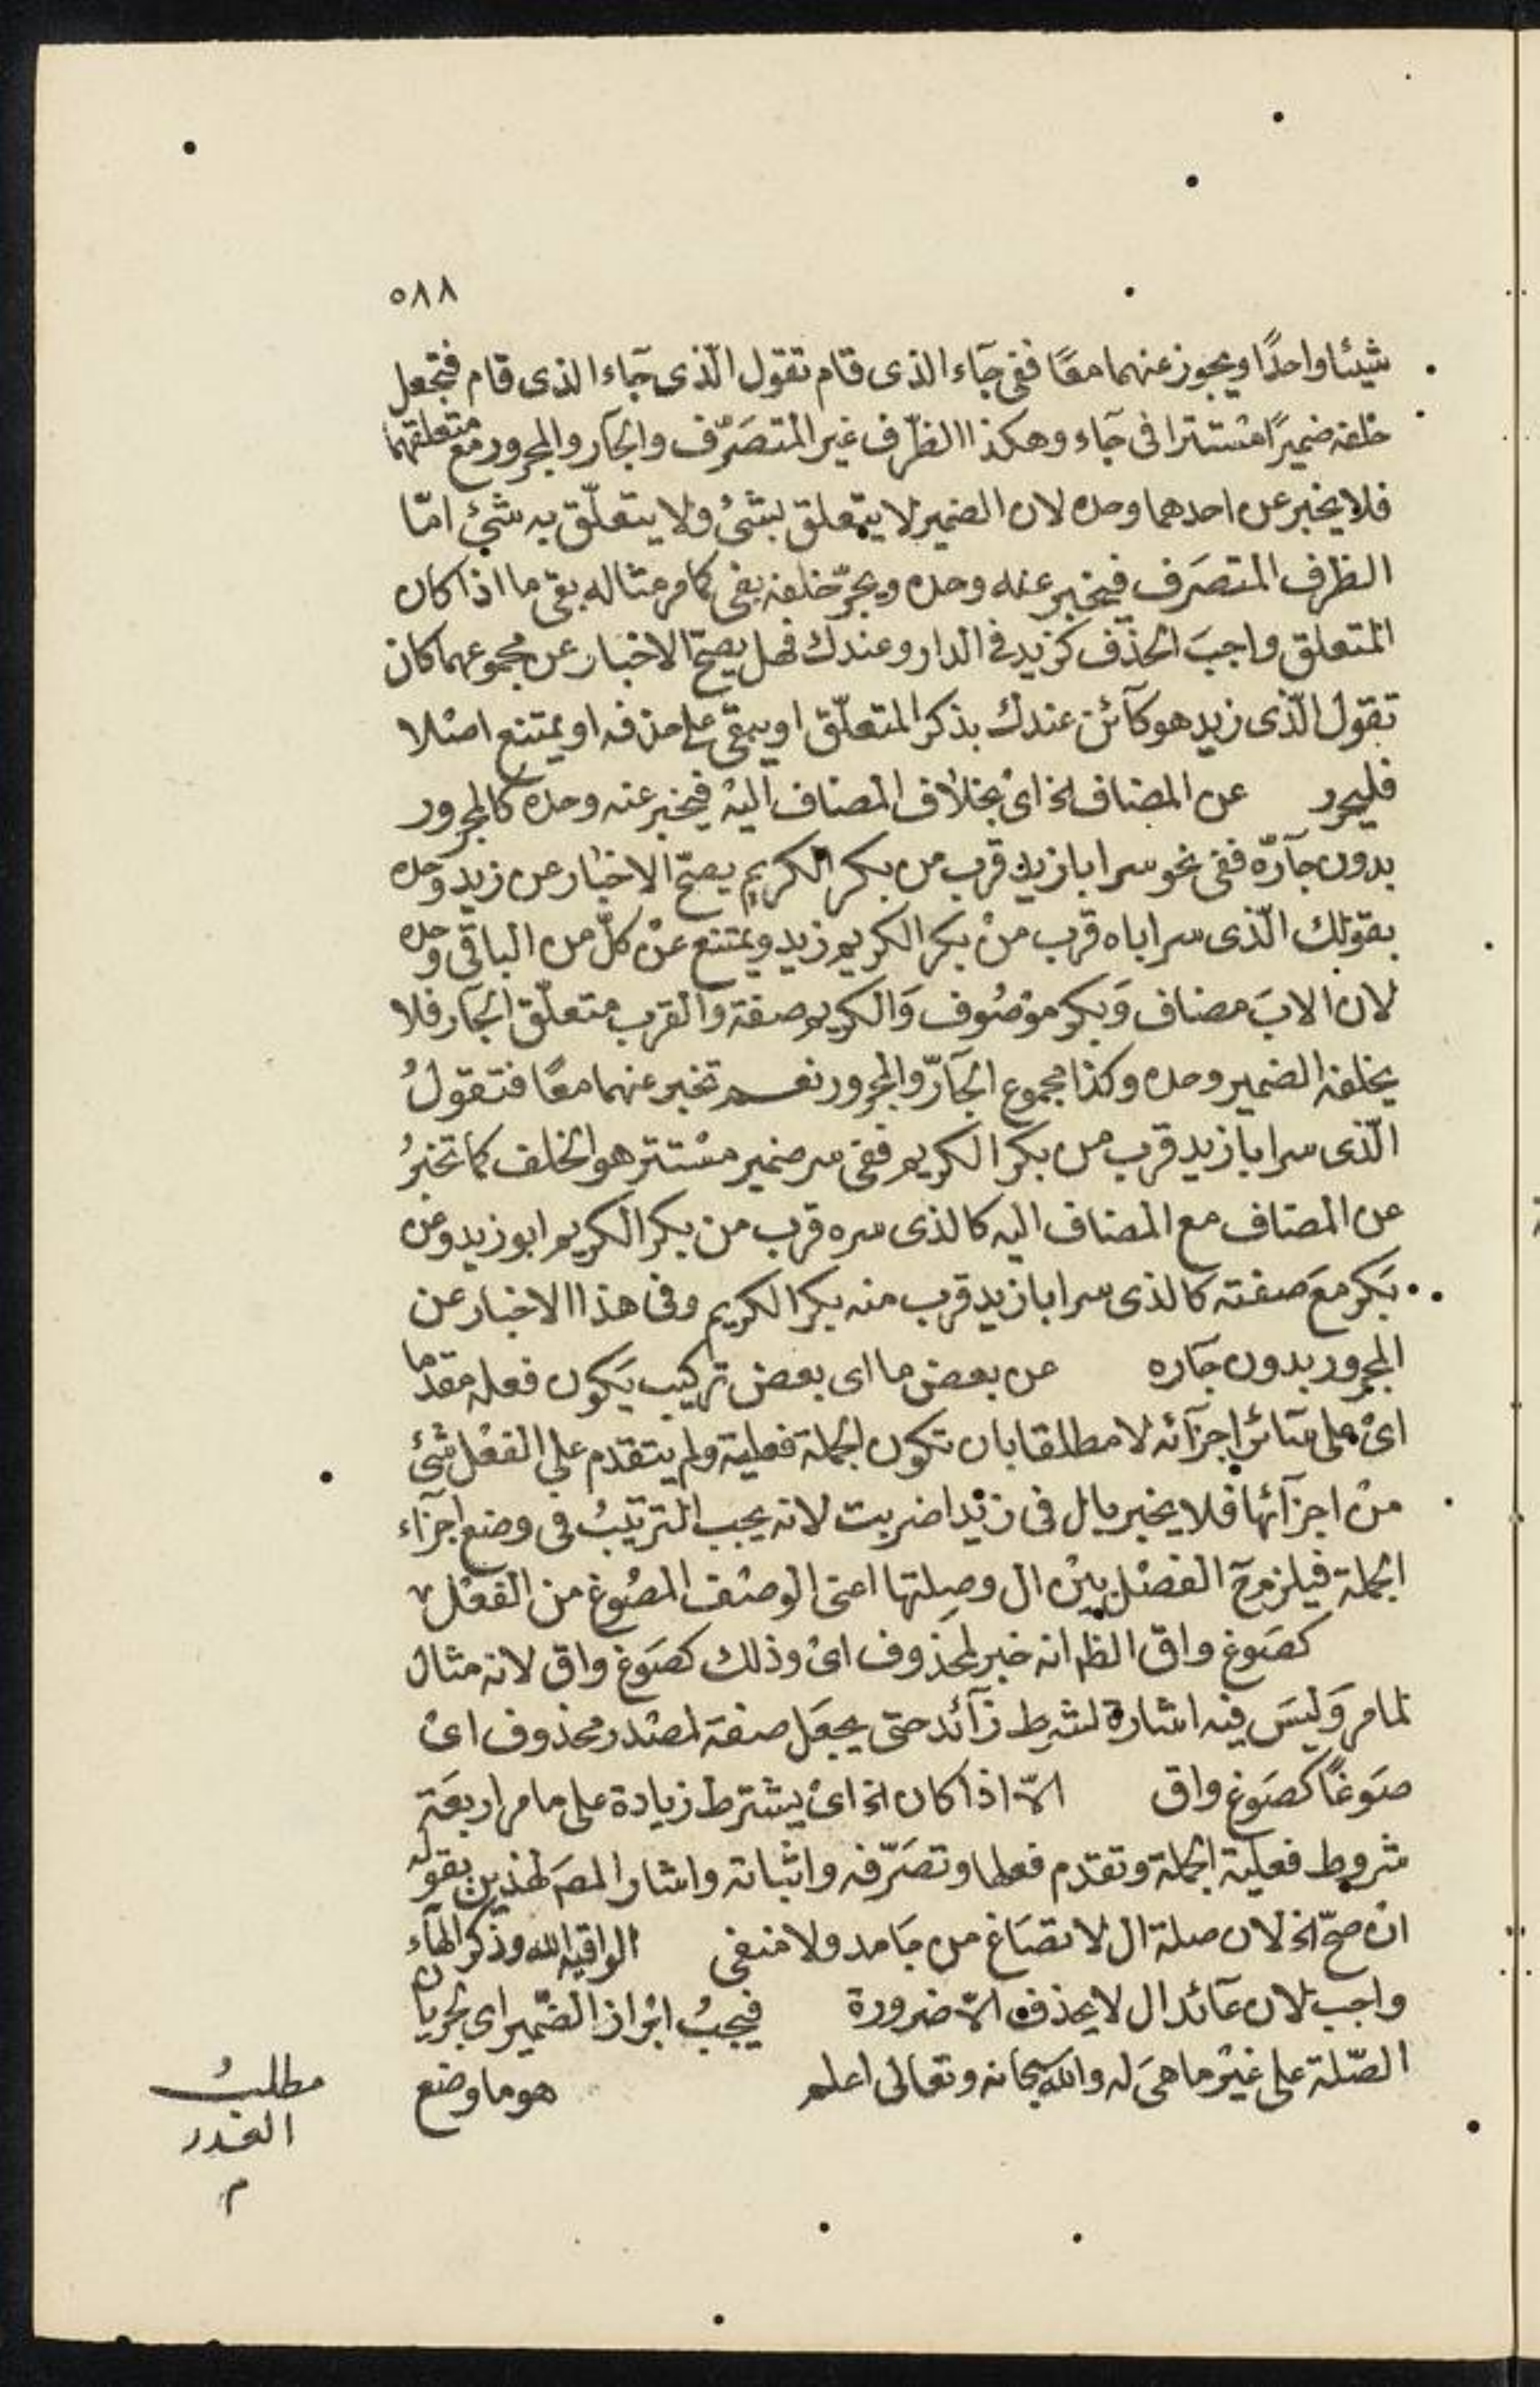 ٥٨٨
شيئا واحدًا ويجوز عنهما معًا ففى جآء الذى قام تقول الّذى جآء الذى قام فتجعل
خلفه ضميرًا مستترا فى جآء وهكذا الظرف غير المتصَرّف والجآر والمجرور مع متعلقهما
فلا يخبر عن احدهما وحده لان الضمير لا يتعلق بشئ ولا يتعلّق به شئ امّا
الظرف المتصَرف فيخبر عنه وحده ويجرّ خلفه بفى كما مر مثاله بقى ما اذا كان
المتعلق واجبَ الحذف كزيد فى الدار وعندك فهل يصحّ الاخبار عن مجموعهما كان
تقول الّذى زيد هو كآئن عندك بذكر المتعلّق او يبقى على حذفه او يمتنع اصلا
فليحرر عن المضاف الخ اى بخلاف المضاف اليه فيخبر عنه وحده كالمجرور
بدون جآرّه ففى نحو سر ابا زيد قرب من بكر الكريم يصحّ الاخبار عن زيد وحده
بقولك الّذى سر اباه قرب من بكر الكريم زيد ويمتنع عن كلّ من الباقى وحده
لان الابَ مضاف وَبكر موْصُوف وَالكريم صفة وَالقرب متعلّق الجآر فلا
يخلفه الضمير وحده وكذا مجموع الجآرّ والمجرور نعم تخبر عنهما معًا فتقولُ
الّذى سر ابا زيد قرب من بكر الكريم ففى سر ضمير مستتر هو الخلف كما تخبرُ
عن المضاف مع المضاف اليه كالذى سره قرب من بكر الكريم ابو زيد وعن
بَكر معَ صفته كالذى سر ابا زيد قرب منه بكر الكريم وفى هذا الاخبار عن
المجرور بدون جآره عن بعض ما اى بعض تركيب يَكون فعله مقدّما
اىْ على سآئر اجزآئه لا مطلقا بان تكون الجملة فعلية ولم يتقدم على الفعْل شئ
من اجزآئها فلا يخبر بال فى زيْدا ضربت لانه يجب الترتيبُ فى وضع اجزآء
الجملة فيلزم ح الفصْل بيْن ال وصِلتها اعنى الوصْف المصُوغ من الفعْل
كصَوغ واق الظ انه خبر لمحذوف اىْ وذلك كصَوغ واق لانه مثال
لما مر وَليسَ فيه اشارة لشرط زآئد حتى يجعَل صفة لمصْدر محذوف اىْ
صَوغًا كصَوغ واق الاّ اذا كان الخ اىْ يشترط زيادة على ما مر اربعَة
شروط فعلية الجملة وتقدم فعلها وتصَرّفه واثباته واشار المصَ لهذين بقوله
انْ صحّ الخ لان صلة ال لا تصَاغ من جَامد ولا منفى الواقيه الله وذكر الهآء
واجب لان عآئد ال لا يحذف الاّ ضرورة فيجبُ ابْراز الضّمير اى لجريان
الصّلة على غيْر ما هىَ له والله سبحانه وتعالى اعلم هو ما وضع
مطلبُ
العدد
م